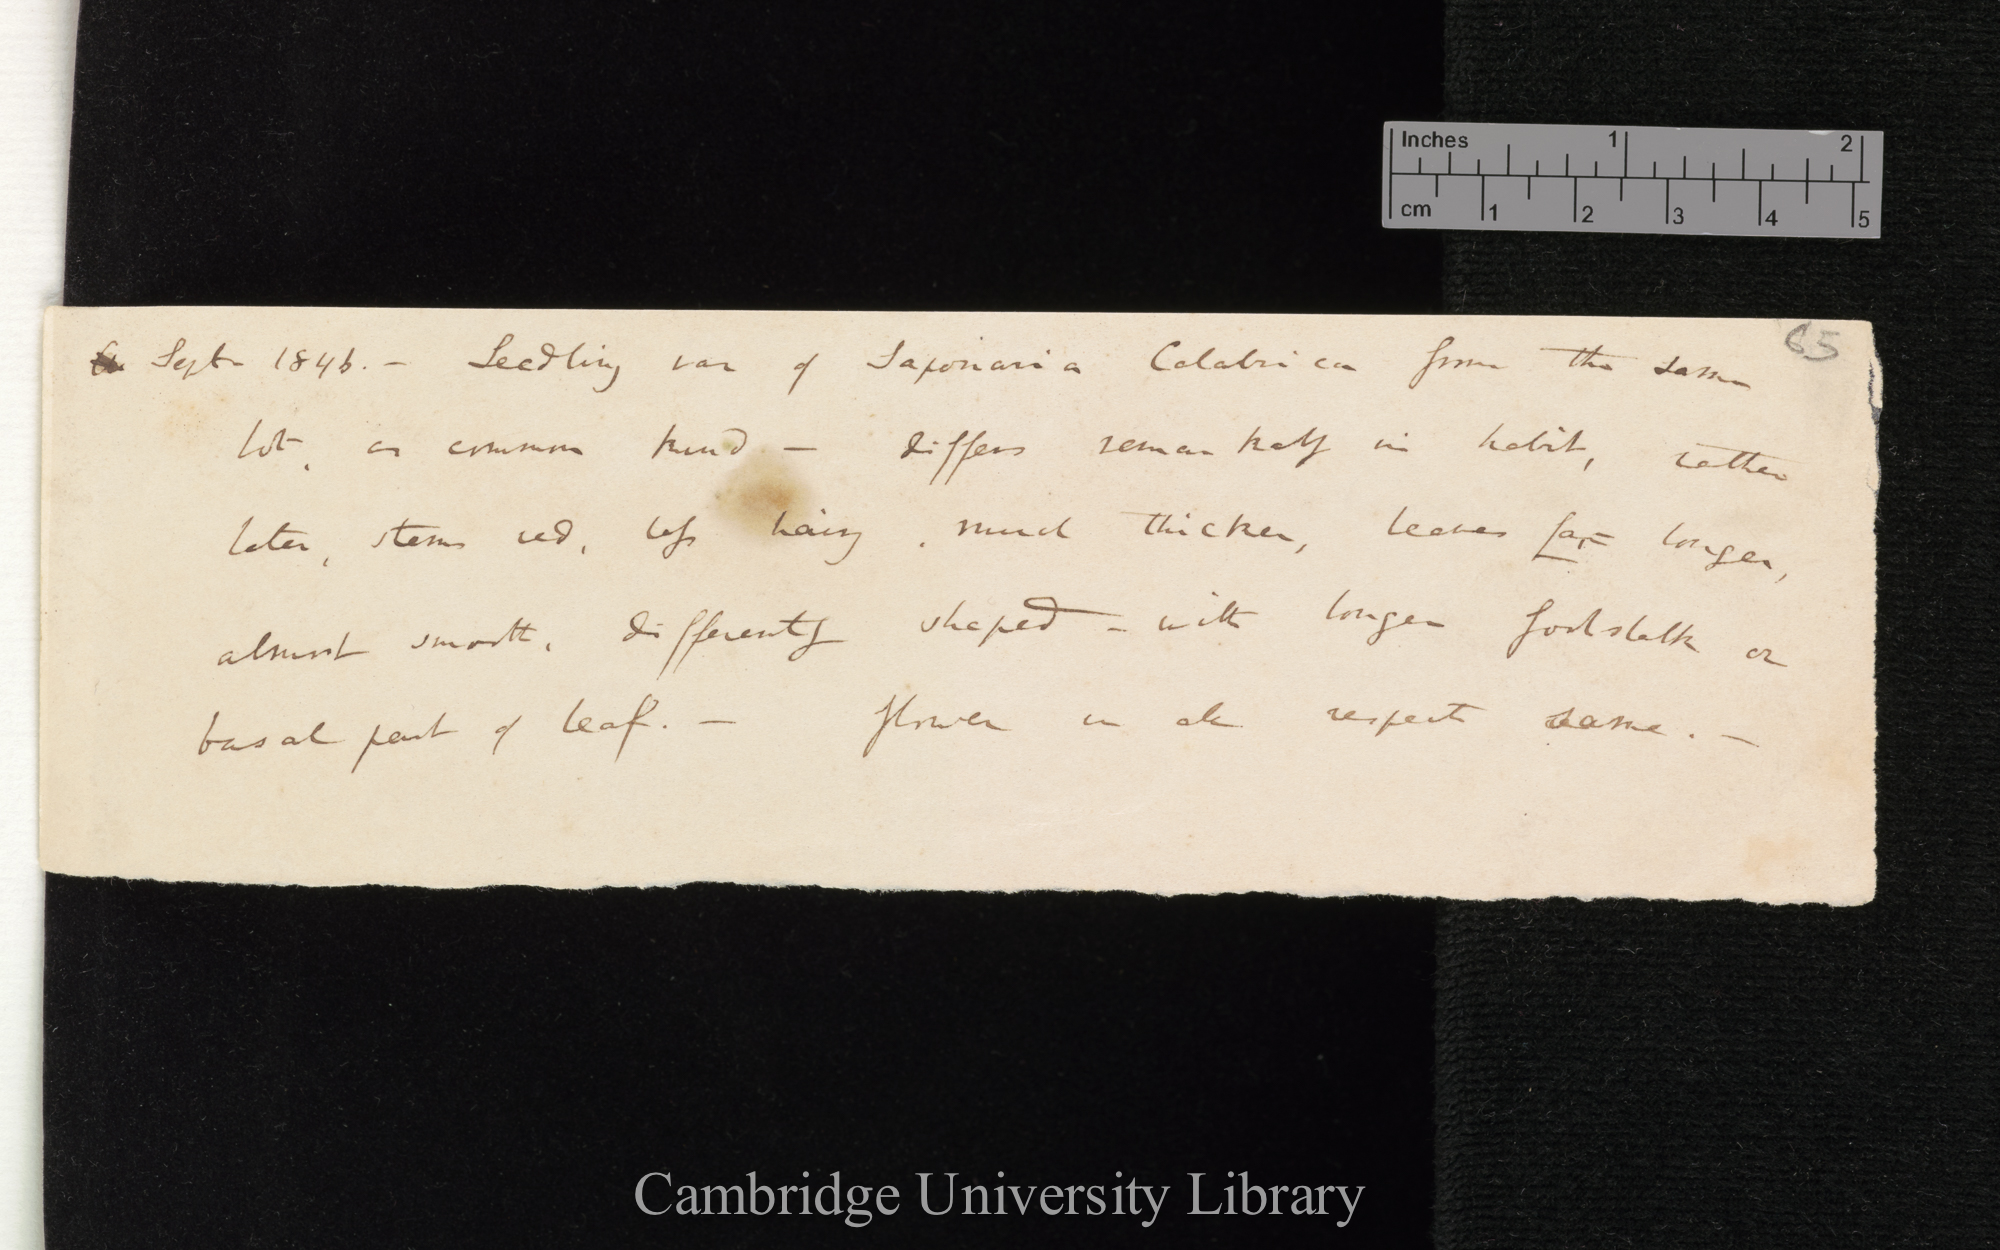 Inches 1 2
cm 1 2 3 4 5
65
Sept 1846. — Seedling var of Saponaria Calabrica from the same
lot, as common kind — differs remarkably in habit, rather
later, stems red, less hairy, much thicker, leaves far longer,
almost smooth, differently shaped – with longer footstalk or
basal part of leaf. — flower in all respect same. —
Cambridge University Library